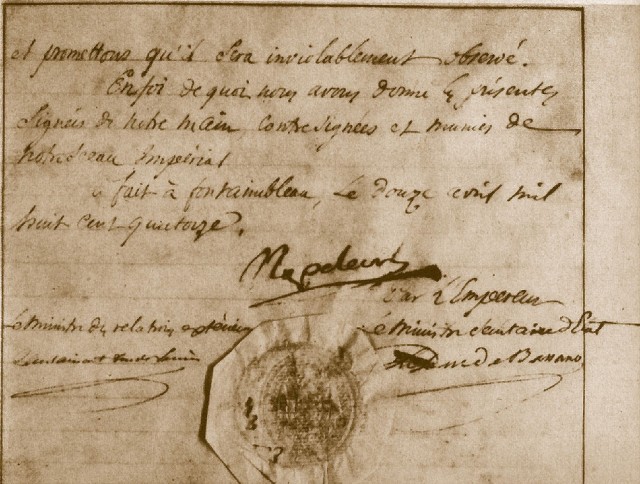 et promettons qu'il sera inviolablement observé.
En foi de quoi nous avons donné les présentes
signées de notre main contresignées et munies de
notre sceau impérial
fait à fontainebleau, le douze avril mil
huit cent quatorze.
Napoleon
Par l'Empereur
Le Ministre des relations extérieures
Le Ministre secrétaire d'Etat
Caulaincourt duc de Vicence
Le Duc de Bassano